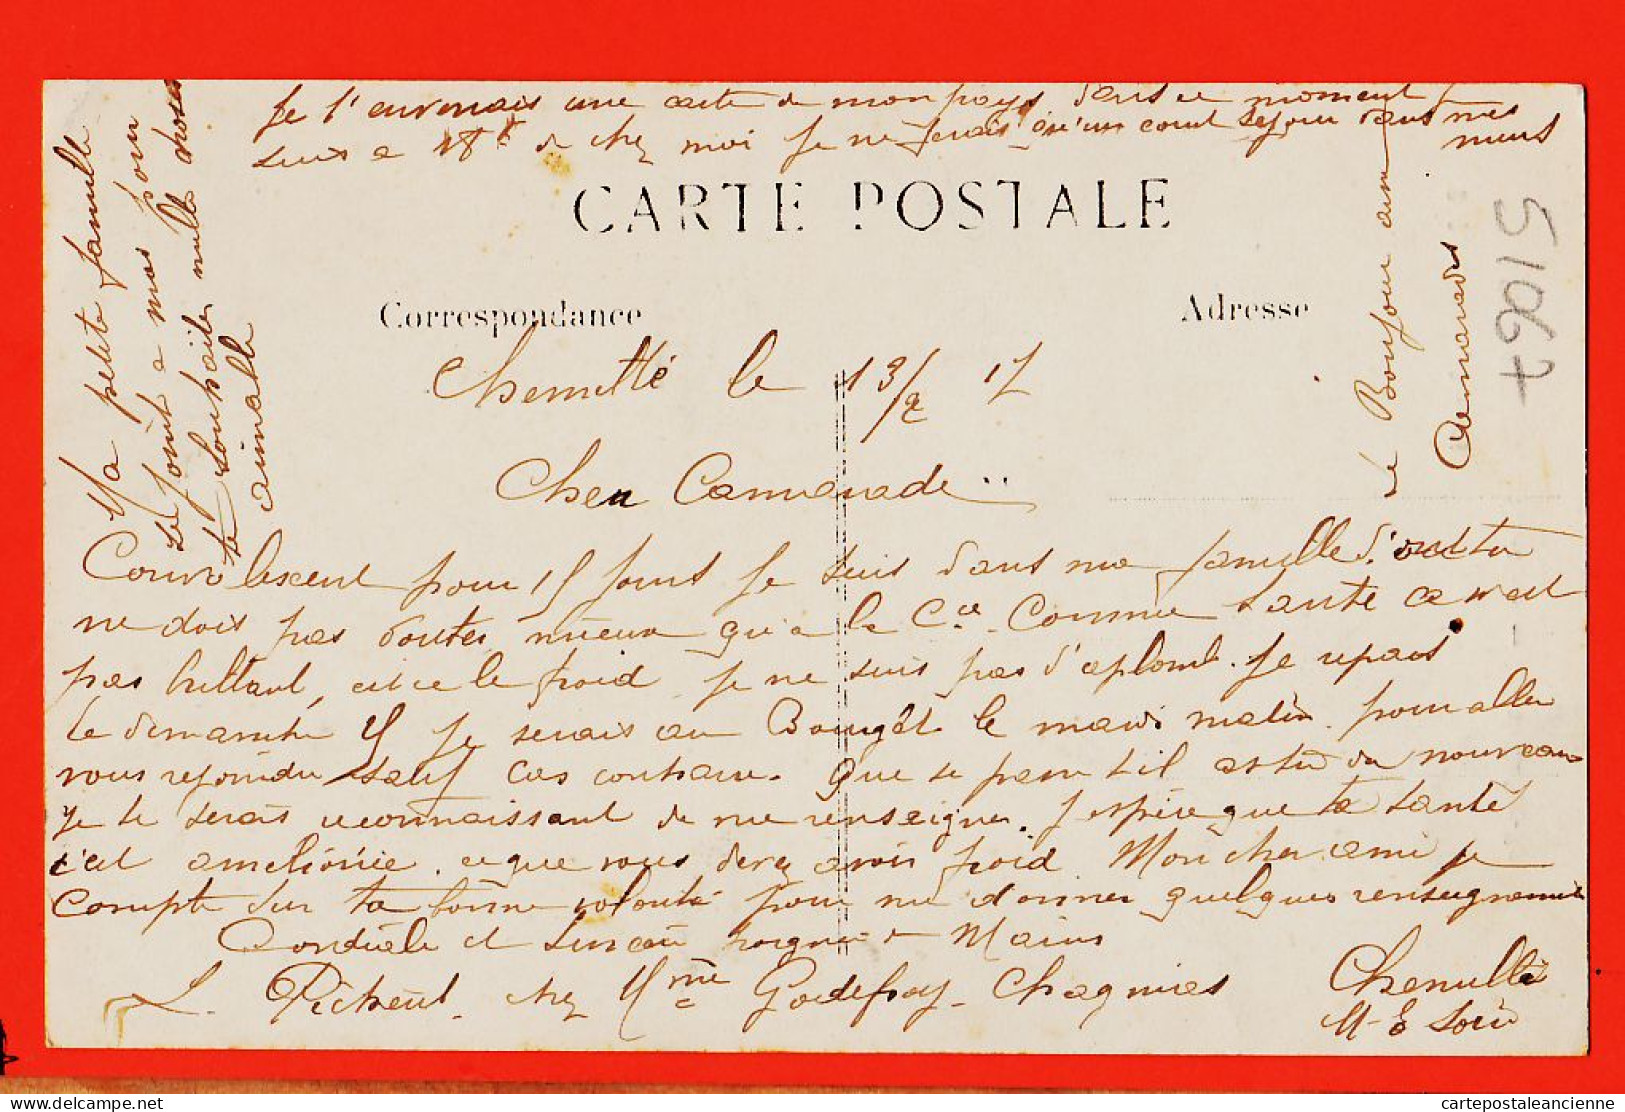 Je t'envenais une carte de mon pays. dans ce moment je
suis a 18 k de chez moi je ne ferais qu'un court sejour dans mes
murs
CARTE POSTALE
Correspondance
Adresse
Chemillé le 13/2 17
Cher Camarade ..
Convalescent pour 15 jours je suis dans ma famille d'
ne dois pas douter mieux qu'a la Cie Comme Santé ce n'est
pas brillant, est ce le froid je ne suis pas d'aplomb. Je repars
le dimanche je serais au Bourget le mardi matin pour aller
vous rejoindre sauf cas contraire. Que se passe t'il du nouveau
je te serais reconnaissant de me renseigner. J'espère que ta santé
c'est ameliorée. ce que vous devez avoir froid Mon cher ami je
compte sur ta bonne volonté pour me donner quelques renseignements
Cordiale et Sincère poignée de Mains
L. Pichent. chez Mme Godefroy Chemillé
M-E Loire
Ma petite famille
se joint a moi pour
te souhaiter mille choses
aimable
le Bonjour aux
Camarades
51067
cartepostaleancienne
delcampe.net cartepostaleancienne.com